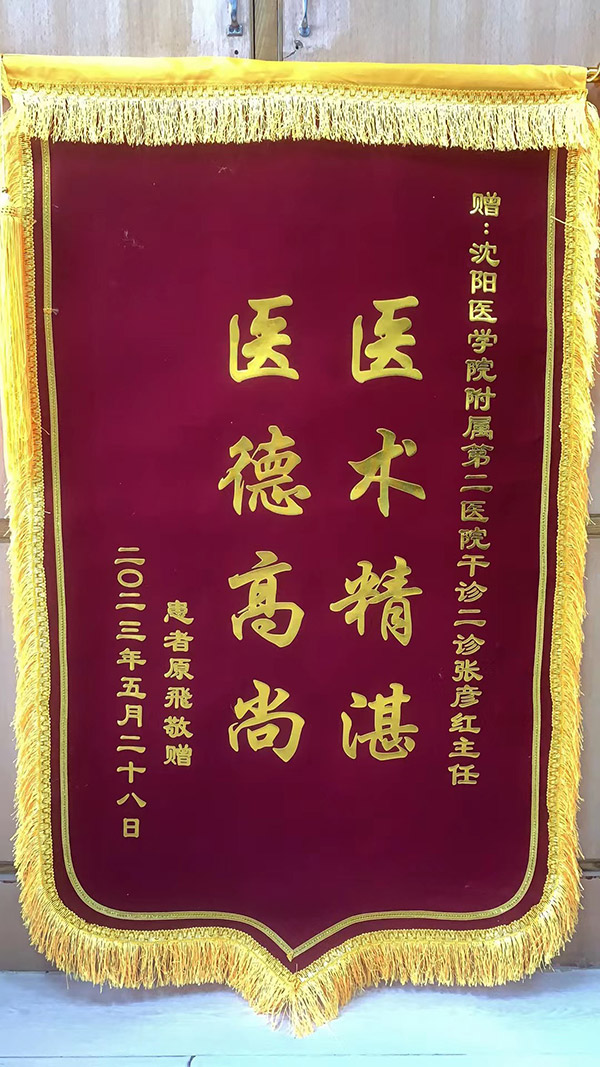 赠:沈阳医学院附属第二医院干诊二诊张彦红主任
医术精湛
医德高尚
患者原飛敬赠
二〇二三年五月二十八日